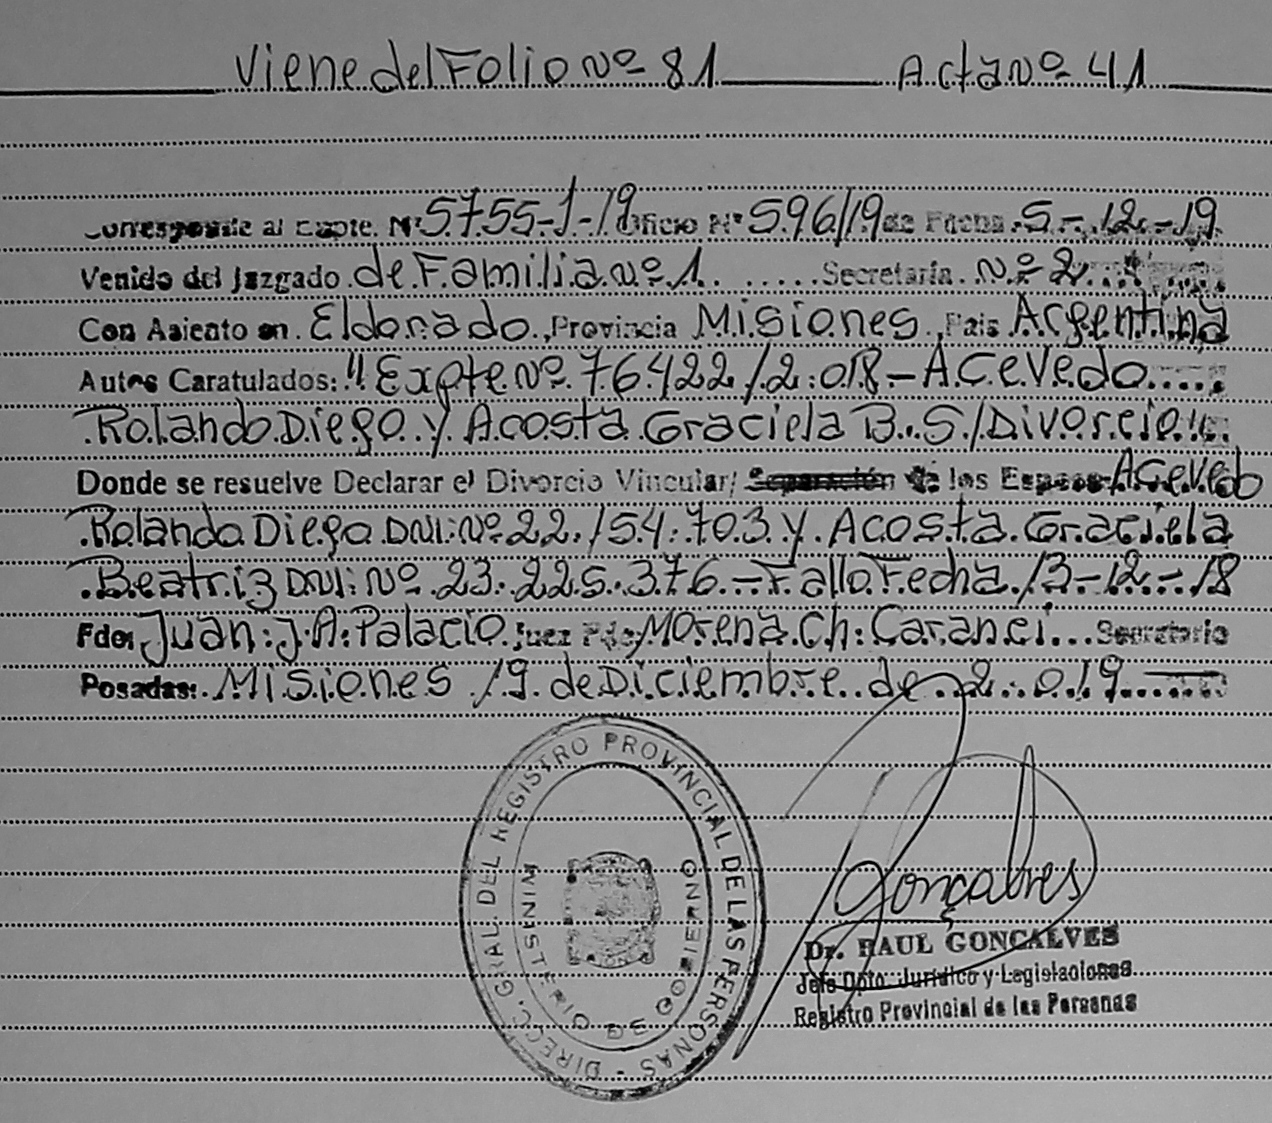 Viene del Folio Nº 81 Acta Nº 41
Corresponde al Expte. Nº 5755-1-19 Oficio Nº 596/19 de Fecha 5-12-19
Venido del Juzgado de Familia Nº 1 Secretaría Nº 2
Con Asiento en Eldorado, Provincia Misiones, País Argentina
Autos Caratulados: "Expte Nº 76422/2018 - Acevedo
Rolando Diego y Acosta Graciela B. S/Divorcio"
Donde se resuelve Declarar el Divorcio Vincular/ Separación de los Esposos Acevedo
Rolando Diego DNI: Nº 22.154.703 y Acosta Graciela
Beatriz DNI: Nº 23.225.376 - Fallo Fecha 13-12-18
Fdo: Juan J. A. Palacio Juez Fdo Morena Ch: Secretario
Posadas: Misiones 19 de Diciembre de 2019
DIRECC. GRAL. DEL REGISTRO PROVINCIAL DE LAS PERSONAS -
MINISTERIO DE GOBIERNO
Gonçalves
Dr. RAUL GONCALVES
Jefe Dpto. Jurídico y Legislaciones
Registro Provincial de las Personas